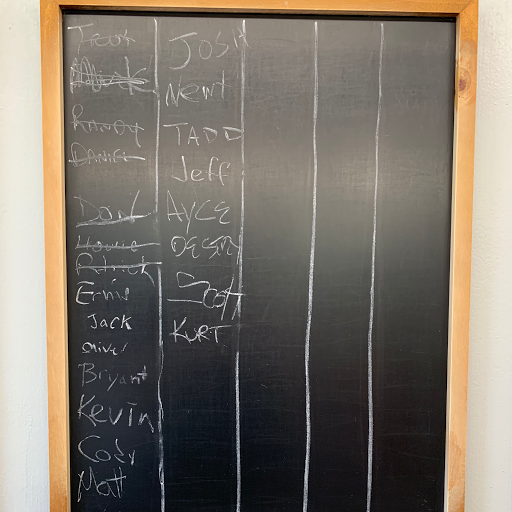 Trent
Randy
Daniel
Don
Howie
Patrick
Ernie
Jack
Bryant
Kevin
Cody
Matt
Josh
Newt
TADD
Jeff
AYCE
Scott
KURT